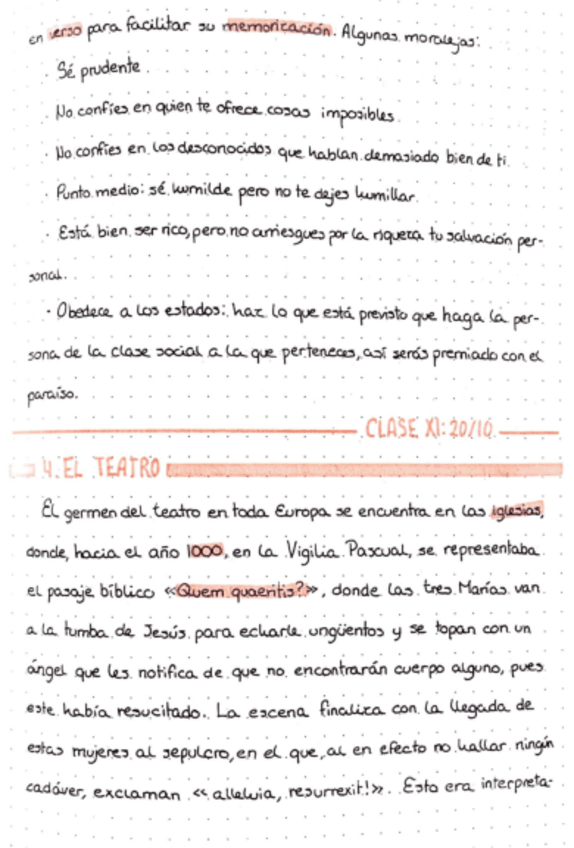 en verso para facilitar su memorización. Algunas moralejas:
· Sé prudente
· No confíes en quien te ofrece cosas imposibles.
· No confíes en los desconocidos que hablan demasiado bien de ti
· Punto medio: sé humilde pero no te dejes humillar.
· Está bien ser rico, pero no arriesgues por la riqueza tu salvación per-
sonal.
· Obedece a los estados: haz lo que está previsto que haga la per-
sona de la clase social a la que perteneces, así serás premiado con el
paraíso.
CLASE XI: 20/10
4. EL TEATRO
El germen del teatro en toda Europa se encuentra en las iglesias,
donde, hacia el año 1000, en la Vigilia Pascual, se representaba
el pasaje bíblico «Quem quaeritis?», donde las tres Marías van
a la tumba de Jesús para echarle ungüentos y se topan con un
ángel que les notifica de que no encontrarán cuerpo alguno, pues
este había resucitado. La escena finaliza con la llegada de
estas mujeres al sepulcro, en el que, al en efecto no hallar ningún
cadáver, exclaman «alleluia, resurrexit!». Esto era interpreta-